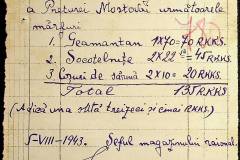 a Preturei Mostovăi următoarele
mărfuri
1. Geamantan 1X70=70 RKKS.
2. Socotelnițe 2X22½=45 RKKS
3. Coșuri de sârmă 2X10=20RKKS.
Total 135 RKKS.
(Adică una sută treizeci și cinci RKKS.)
5-VIII-1943. Șeful magazinului raional.